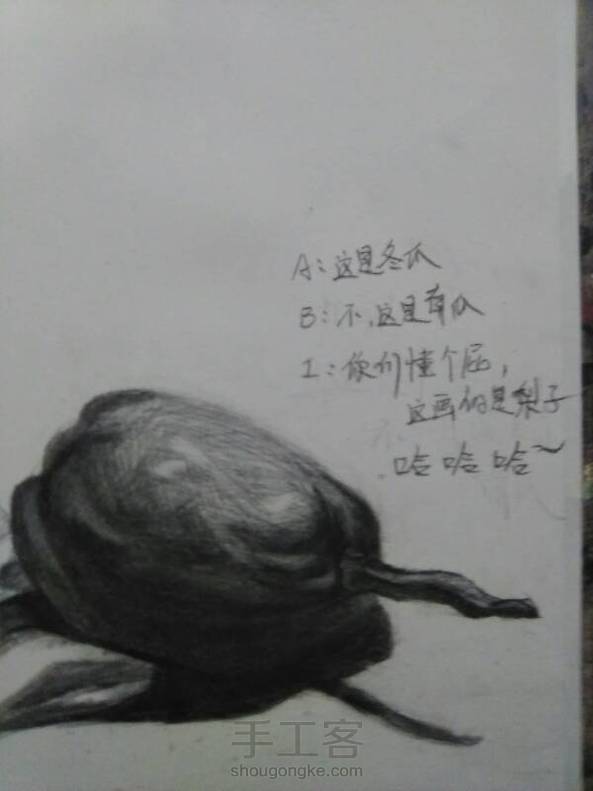 A：这是冬瓜
B：不，这是南瓜
I：你们懂个屁，
这画的是梨子
哈哈哈~
手工客
shougongke.com